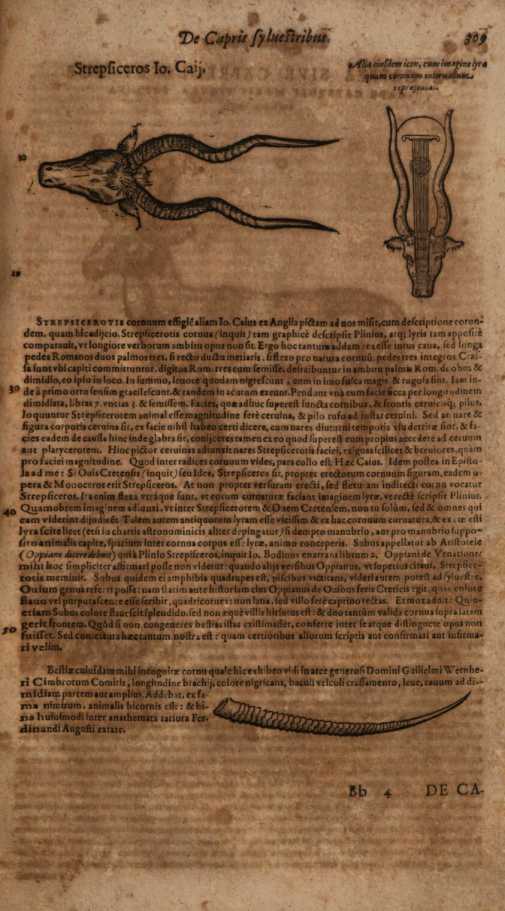 De Capris syluestribus.
309
Strepsiceros Io. Caij.
Alia eiusdem icon, cum imagine lyræ
quam cornuum
repræsentat.
STREPSICEROTIS cornuum effigiē aliam Io. Caius ex Anglia pictam ad nos misit, cum descriptione eorun-
dem, quam hic adijcio. Strepsicerotis cornua (inquit) tam graphicè descripsit Plinius, atq; lyris tam appositè
comparauit, vt longiore verborum ambitu opus non sit. Ergo hoc tantum addam ea esse intus caua, sed longa
pedes Romanos duos palmos tres, si recto ductu metiaris: si flexo pro natura cornuū, pedes tres integros Cras-
sa sunt vbi capiti committuntur, digitos Rom. tres cum semisse.
dimidio, eo ipso in loco. In summo, leuore quodam nigrescunt, cum in imo fusca magis & rugosa sint. Iam in-
30
de à primo ortu sensim gracilescunt, & tandem in acutum exeunt. Pendunt vnà cum facie
dimidiata, libras 7. vncias 3. & semissem. Facies, quæ adhuc superest iuncta cornibus, & frontis ceruicisq; pilus,
loquuntur Strepsicerotem animal esse magnitudine ferè ceruina, & pilo rufo ad instar ceruini. Sed an nare &
figura corporis ceruina sit, ex facie nihil habeo certi dicere, cum nares diuturni temporis vsu detritæ sint, & fa-
cies eadem de causa hinc inde glabra sit, conijceres tamen ex eo quod superest eum propius accedere ad ceruum
aut platycerotem.
pro faciei magnitudine. Quod inter radices cornuum vides, pars colli est: Hæc Caius. Idem postea in Epistola
ad me: Si Ouis Cretensis (inquit) seu Idæa, Strepsiceros sit, propter erectorum cornuum figuram, eadem o-
pera & Monoceros erit Strepsiceros. At non propter versuram erecti, sed flexu ani indirecti cornu vocatur
Strepsiceros. Ita enim flexa vtráque sunt, vt eorum curuaturæ faciant imaginem lyræ, verecté scripsit Plinius.
40
Quamobrem imaginem adiunxi, vt inter Strepsicerotem & Ouem Cretensem, non tu solùm, sed & omnes qui
eam viderint dijudicēt. Talem autem antiquorem lyram esse vetissimū
lyra scitè licet (etsi in chartis astronominicis aliter depingatur) si dempto manubrio, aut pro manubrio suppo-
sito animalis capite, spatium inter cornua corpus esse lyræ, animo conceperis. Subus appellatur ab Aristotele
(Oppiano dicere debuit) qui à Plinio Strepsiceros, inquit Io. Bodinus enarrans librum 2. Oppiani de Venatione:
mihi hoc simpliciter affirmari posse non videtur: quando alijs versibus Oppianus, vt superius citaui, Strepsice-
rotis meminit. Subus quidem ei amphibia quadrupes est, piscibus victitans, videri autem potest ad syluestre
Ouium genus referri posse: nam statim ante historiam eius Oppianus de Ouium feris Creticis egit, quas colore
flauo vel purpurascente esse scribit, quadricornes: non lana, sed villo ferè caprino tectas.
etiam Subus colore flauo sit splendido, sed non æquè villis hirsutus est: & duo tantùm valida cornua supra latam
gerit frontem. Quòd si non congeneres bestias istas existimasset, conferre inter se atque distinguere opus non
50
fuisset. Sed coniectura hæc tantum nostra est: quam certioribus aliorum scriptis aut confirmari aut infirma-
ri velim.
Bestiæ cuiusdam mihi incognitæ cornu quale hic exhibeo vidi in arce generosi Domini Guilielmi Wernhe-
ri Cimbrorum Comitis, longitudine brachij, colore nigricans, baculi vtculi crassamento, leue, cauum ad di-
midiam partem aut amplius. Addebat, ex fa-
ma nimirum, animalis bicornis esse: & bi-
na huiusmodi inter anathemata rariora Fer-
dinandi Augusti extare.
Bb 4 DE CA-